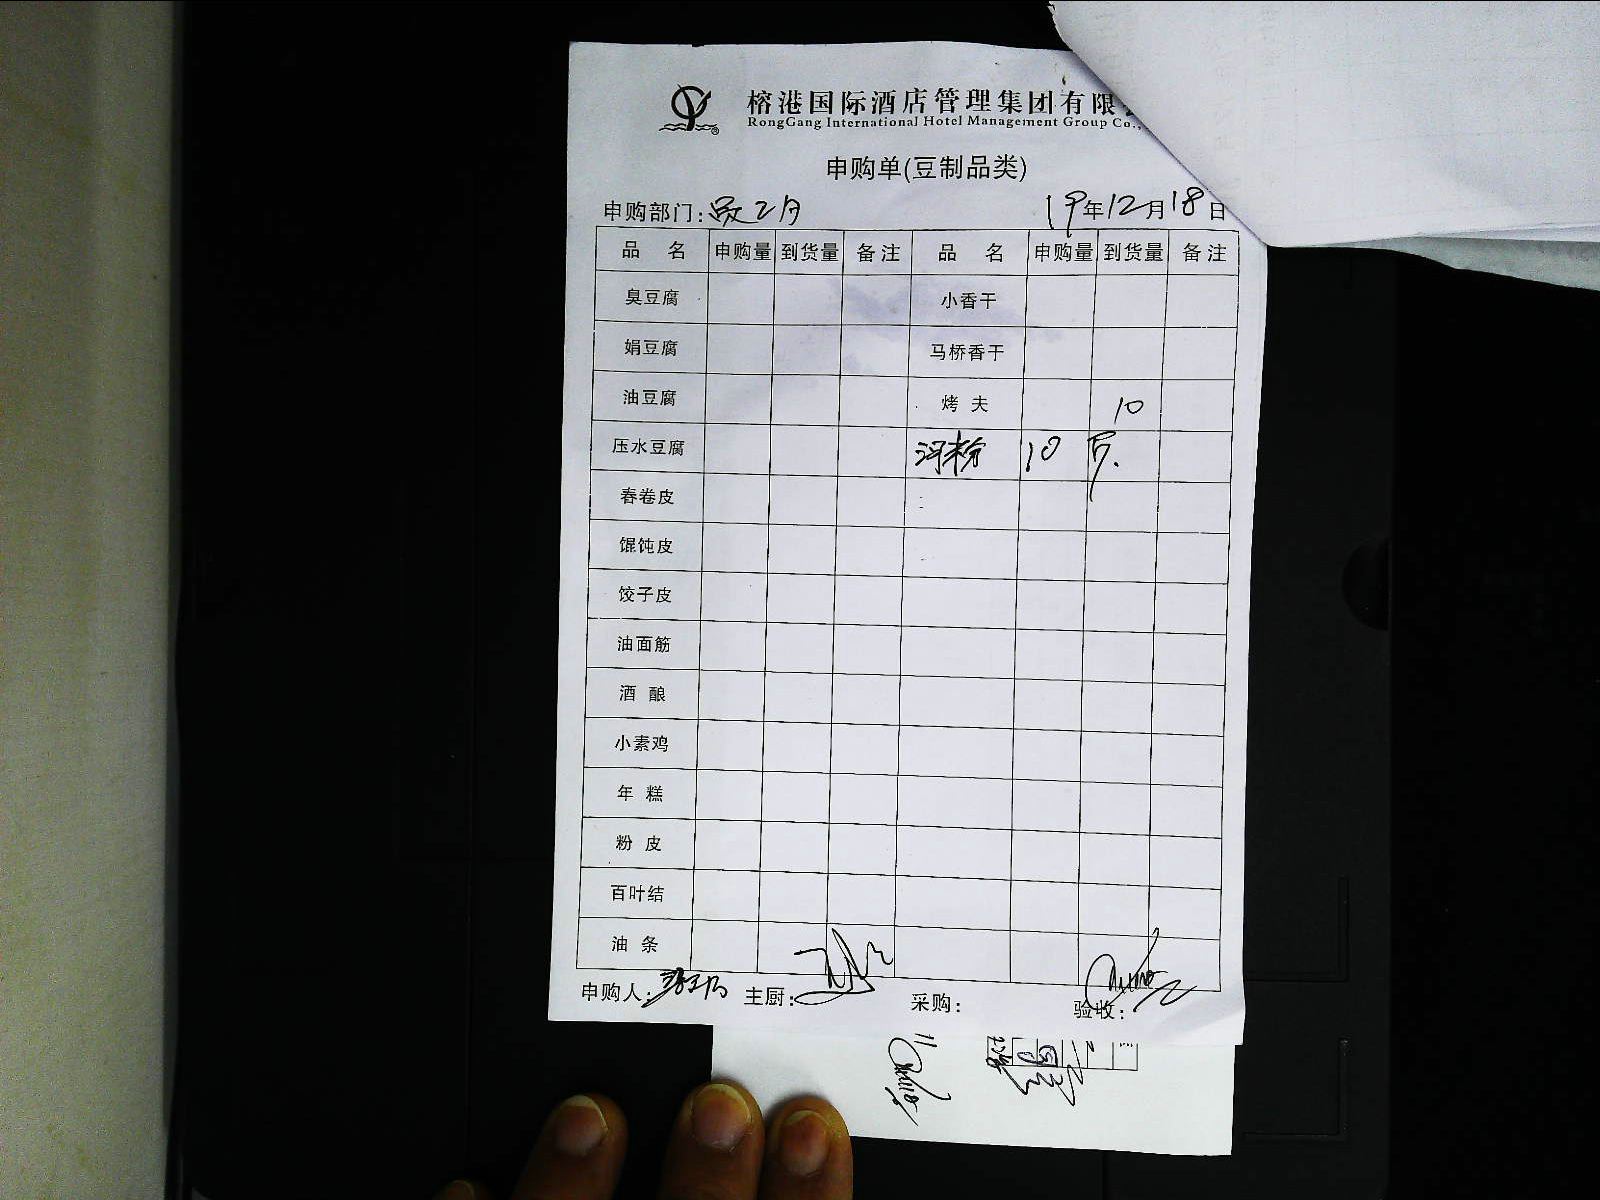 榕港国际酒店管理集团有限
RongGang International Hotel Management Group Co.,
申购单(豆制品类)
申购部门: 19年12月18日
品 名 申购量 到货量 备注 品 名 申购量 到货量 备注
臭豆腐 小香干
娟豆腐 马桥香干
油豆腐 烤 夫 10
压水豆腐 河粉 10 斤.
春卷皮
馄饨皮
饺子皮
油面筋
酒 酿
小素鸡
年 糕
粉 皮
百叶结
油 条
申购人: 主厨: 采购: 验收: